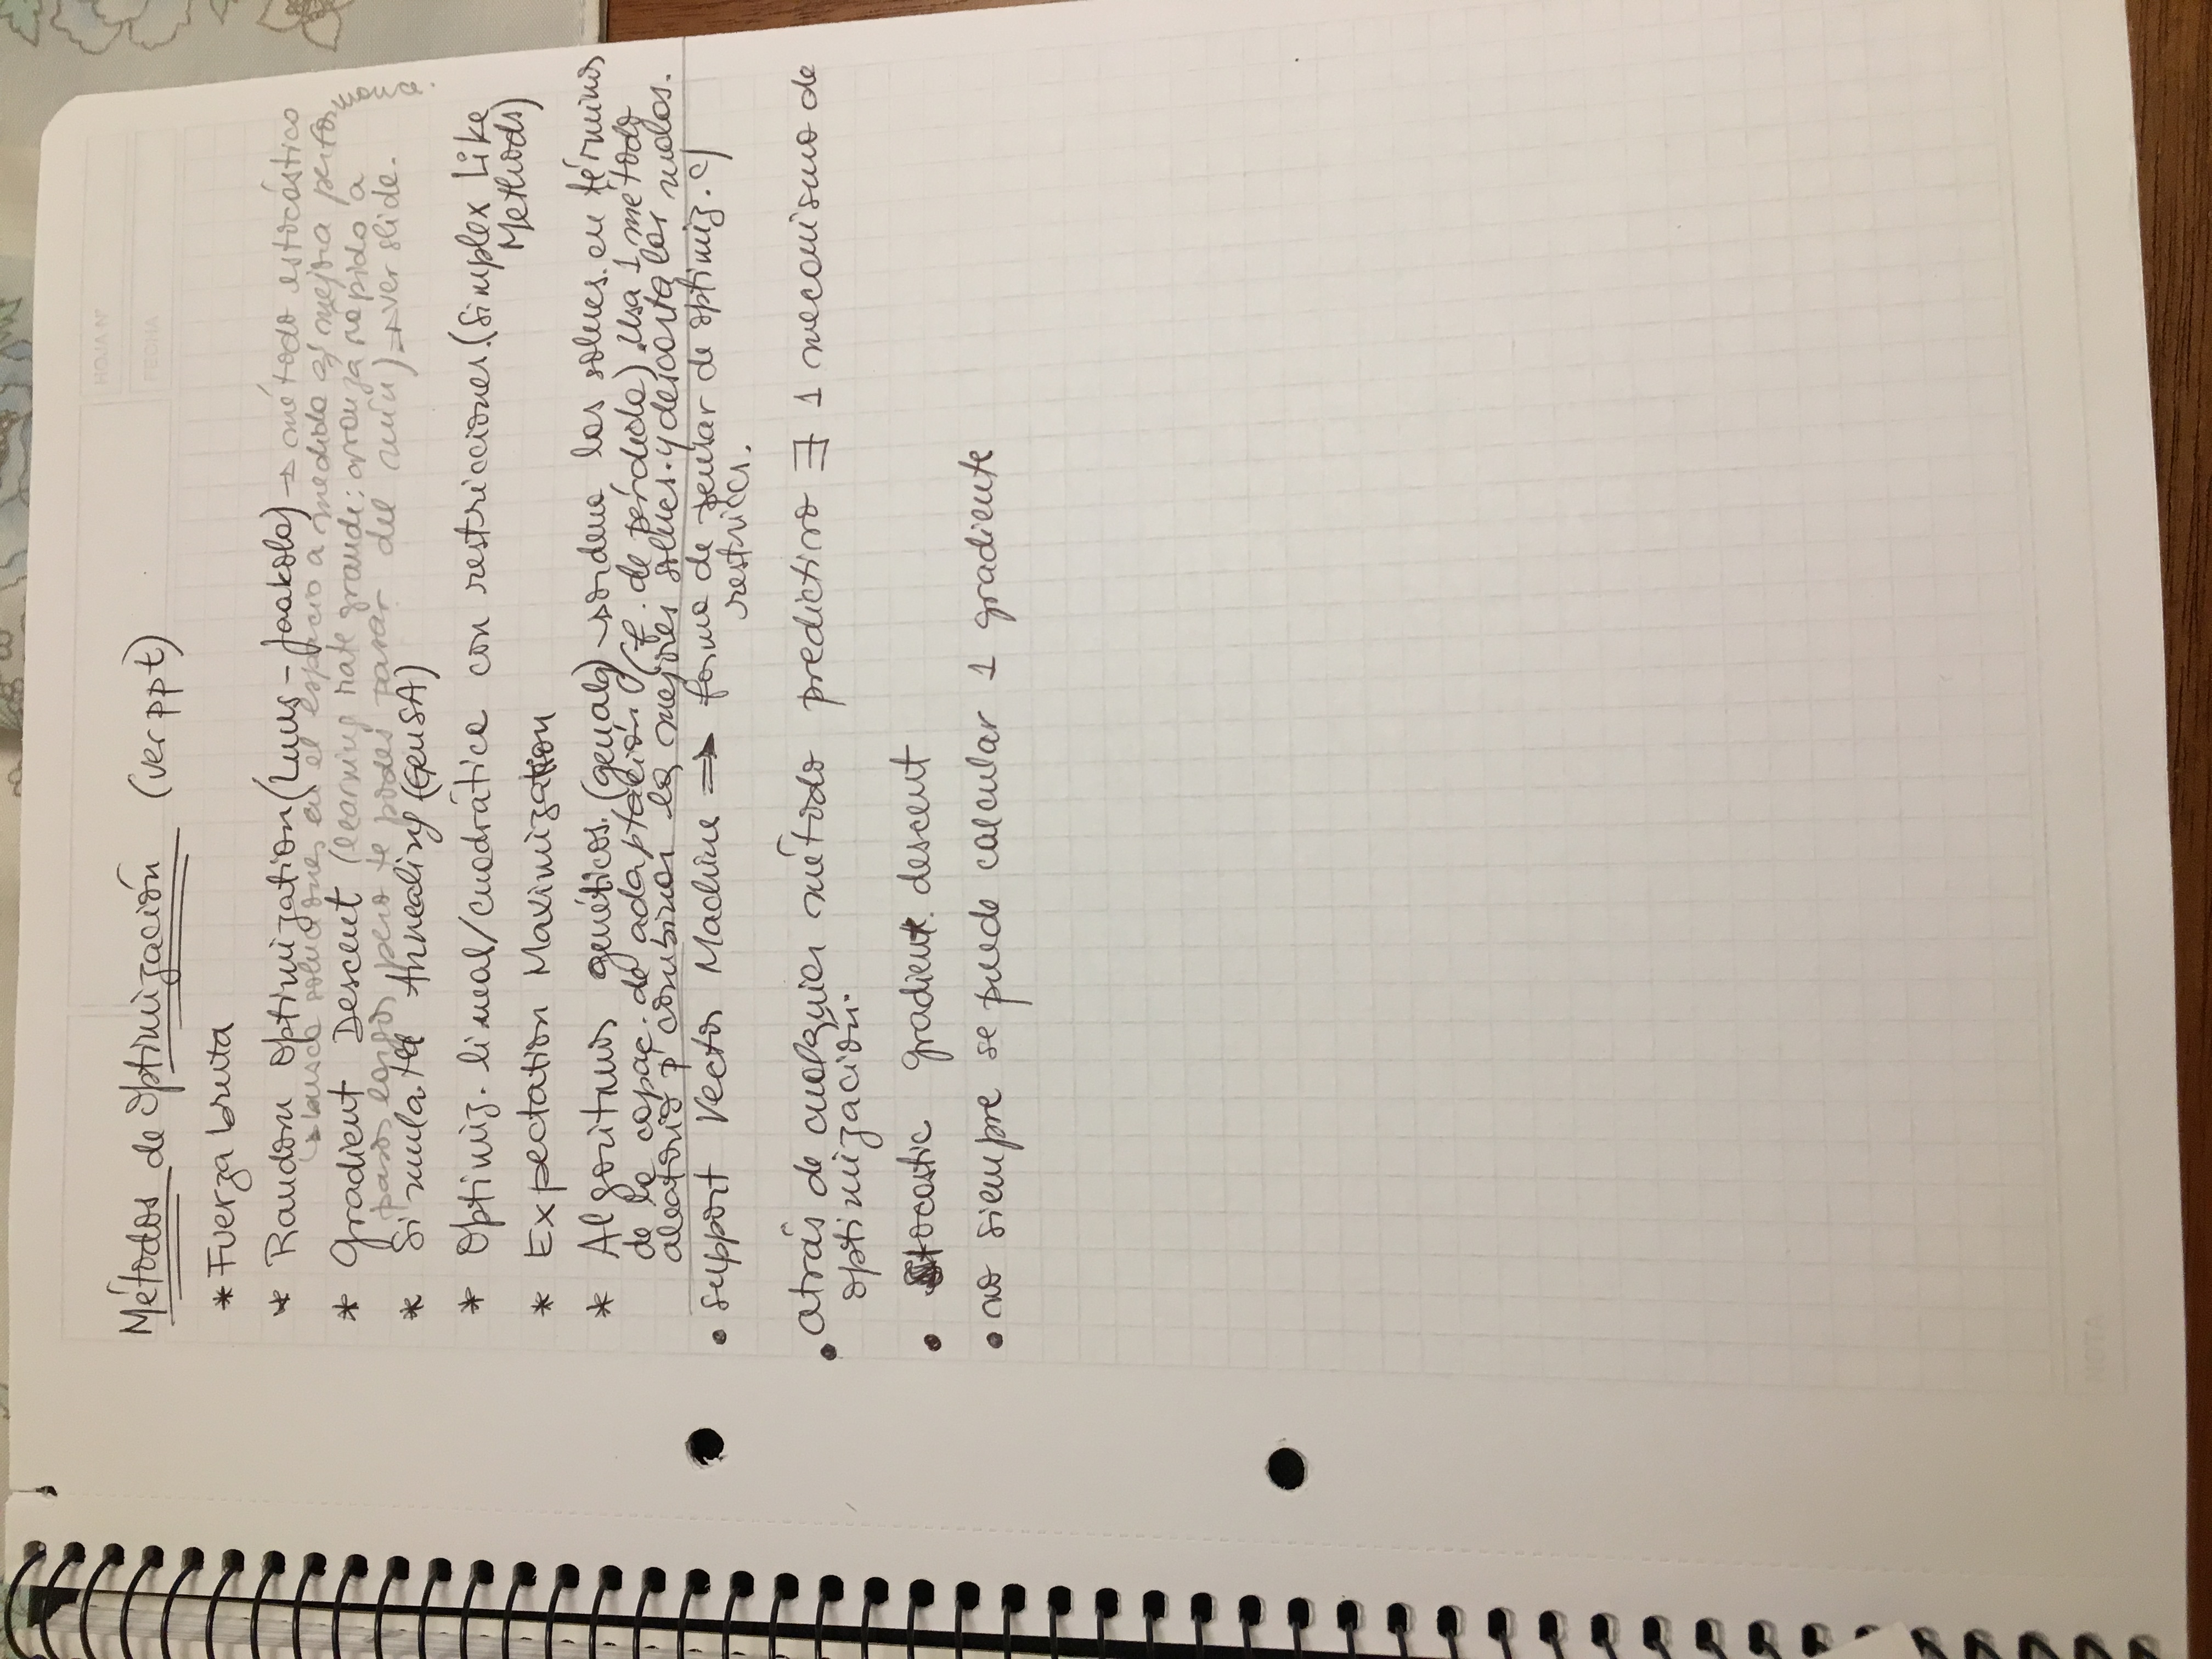 HOJA Nº
FECHA
Métodos de Optimización (ver ppt)
* Fuerza bruta
* Random Optimization (Luus-Jaakola) → método estocástico
↳ busca soluciones en el espacio a medida q' mejora performance.
* Gradient Descent (learning rate grande: avanza rápido a
pasos largos pero te podes pasar del mín) → ver slide.
* Simulated Annealing (GenSA)
* Optimiz. lineal/cuadrática con restricciones. (Simplex Like
Methods)
* Expectation Maximization
* Algoritmos genéticos. (genalg) → ordena las solucs. en términos
de la capac. de adaptación (f. de pérdida). Usa 1 método
aleatorio p' combinar las mejores solucs. y descarta las malas.
• Support Vector Machine ⇒ forma de pensar de optimiz. c/
restriccs.
• atrás de cualquier método predictivo ∃ 1 mecanismo de
optimización.
• Stocastic gradient descent
• no siempre se puede calcular 1 gradiente
NOTA